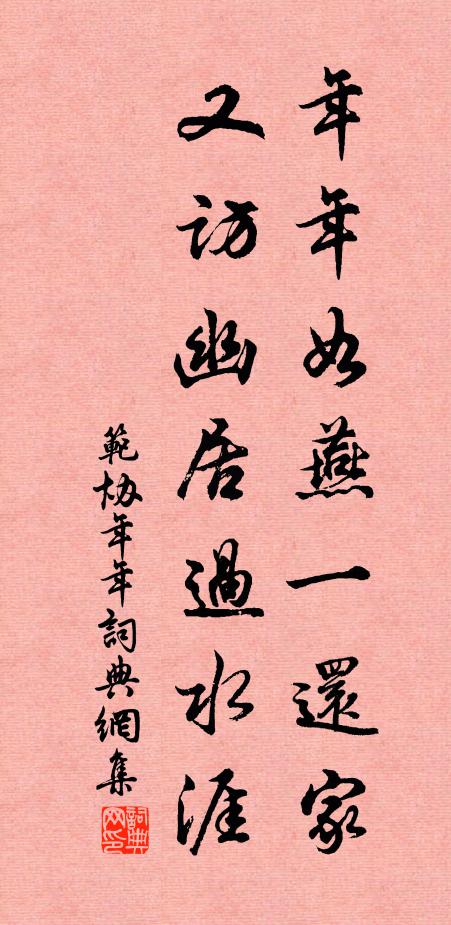 年年如燕一還家
又訪幽居過水涯
範协年年詞典網集
詞典网印